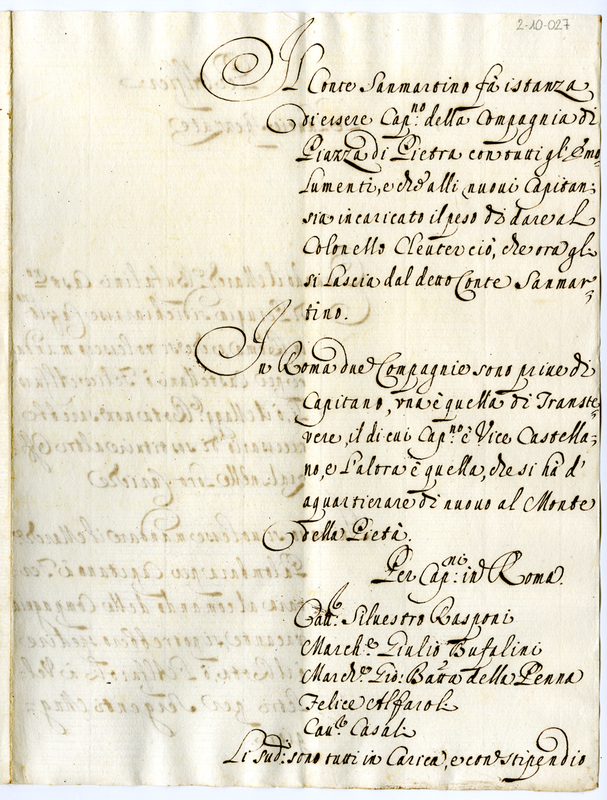 2-10-027
Il Conte Sanmartino fà istanza
di essere Cap.no della Compagnia di
Piazza di Pietra con tutti gl'Emo
lumenti, e che alli nuovi Capitan:
sia incaricato il peso di dare al
Colonello Cleuter ciò, che ora gli
si lascia dal detto Conte Sanmar
tino.
In Roma due Compagnie sono prive di
Capitano, una è quella di Transte
vere, il di cui Cap.no è Vice Castella
no, e l'altra è quella, che si hà d'
aquartierare di nuovo al Monte
della Pietà.
Per Cap.ni in Roma.
Silvestro Rasponi
March.e Giulio Bufalini
March.e Gio: Batta della Penna
Felice
Cav.r Casali
Li sud: sono tutti in Carica, e con stipendio